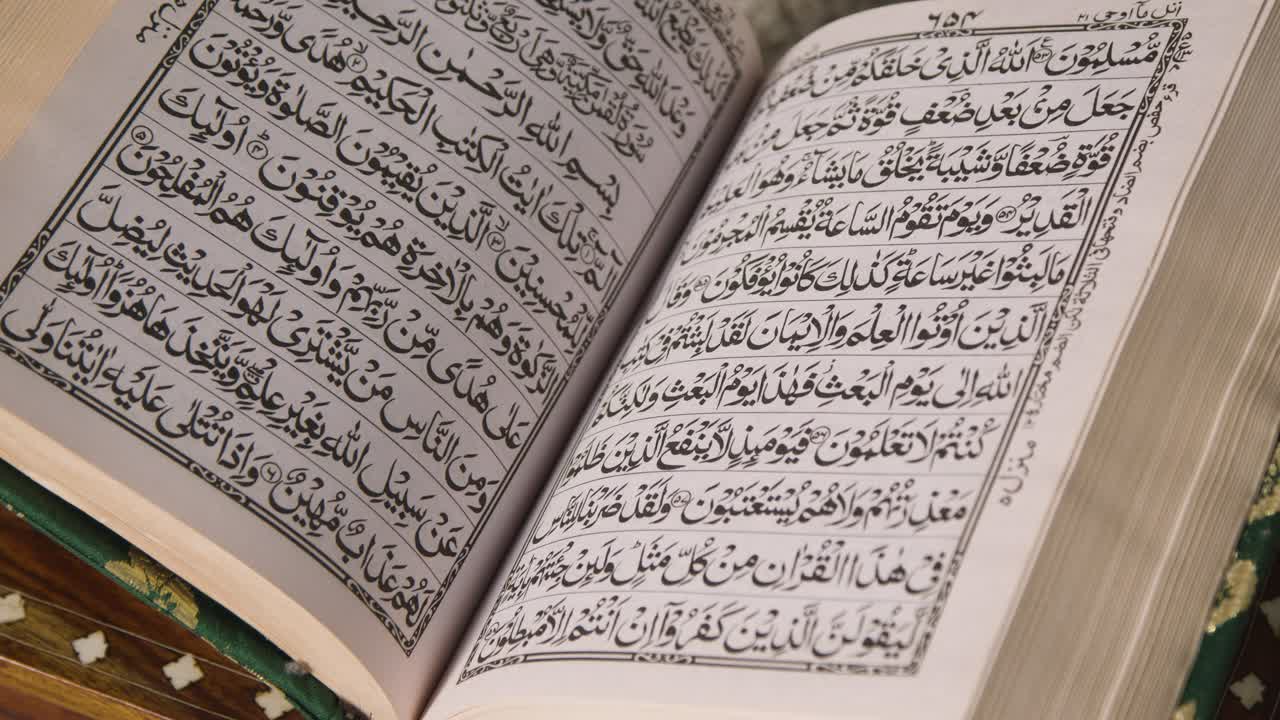 ٦٥٤
اتل ما اوحی ٢١
مُّسْلِمُوْنَ ﴿۵۳﴾ اَللّٰهُ الَّذِیْ خَلَقَكُمْ مِّنْ ضُعْفٍ
جَعَلَ مِنْۢ بَعْدِ ضُعْفٍ قُوَّةً ثُمَّ جَعَلَ مِنْۢ
قُوَّةٍ ضُعْفًا وَّشَیْبَةً ؕ یَخْلُقُ مَا یَشَآءُ ۚ وَهُوَ الْعَلِیْمُ
الْقَدِیْرُ ﴿۵۴﴾ وَیَوْمَ تَقُوْمُ السَّاعَةُ یُقْسِمُ الْمُجْرِمُوْنَ
مَا لَبِثُوْا غَیْرَ سَاعَةٍ ؕ كَذٰلِكَ كَانُوْا یُؤْفَكُوْنَ ﴿۵۵﴾ وَقَا
الَّذِیْنَ اُوْتُوا الْعِلْمَ وَالْاِیْمَانَ لَقَدْ لَبِثْتُمْ فِیْ كِتٰبِ
اللّٰهِ اِلٰی یَوْمِ الْبَعْثِ ؗ فَهٰذَا یَوْمُ الْبَعْثِ وَلٰكِنَّكُمْ
كُنْتُمْ لَا تَعْلَمُوْنَ ﴿۵۶﴾ فَیَوْمَىِٕذٍ لَّا یَنْفَعُ الَّذِیْنَ ظَلَمُوْا
مَعْذِرَتُهُمْ وَلَا هُمْ یُسْتَعْتَبُوْنَ ﴿۵۷﴾ وَلَقَدْ ضَرَبْنَا لِلنَّاسِ
فِیْ هٰذَا الْقُرْاٰنِ مِنْ كُلِّ مَثَلٍ ؕ وَلَىِٕنْ جِئْتَهُمْ بِاٰیَةٍ
لَّیَقُوْلَنَّ الَّذِیْنَ كَفَرُوْۤا اِنْ اَنْتُمْ اِلَّا مُبْطِلُوْنَ ﴿۵۸﴾
منزل ۵
كَذٰلِكَ یَطْبَعُ اللّٰهُ
وَعْدَ اللّٰهِ حَقٌّ وَّلَا
سُوْرَةُ لُقْمٰنَ مَكِّیَّةٌ وَّهِیَ
بِسْمِ اللّٰهِ الرَّحْمٰنِ الرَّحِیْمِ
الٓمّٓ ﴿۱﴾ تِلْكَ اٰیٰتُ الْكِتٰبِ الْحَكِیْمِ ﴿۲﴾ هُدًی وَّرَحْمَةً
لِّلْمُحْسِنِیْنَ ﴿۳﴾ الَّذِیْنَ یُقِیْمُوْنَ الصَّلٰوةَ وَیُؤْتُوْنَ
الزَّكٰوةَ وَهُمْ بِالْاٰخِرَةِ هُمْ یُوْقِنُوْنَ ﴿۴﴾ اُولٰٓىِٕكَ
عَلٰی هُدًی مِّنْ رَّبِّهِمْ وَاُولٰٓىِٕكَ هُمُ الْمُفْلِحُوْنَ ﴿۵﴾
وَمِنَ النَّاسِ مَنْ یَّشْتَرِیْ لَهْوَ الْحَدِیْثِ لِیُضِلَّ
عَنْ سَبِیْلِ اللّٰهِ بِغَیْرِ عِلْمٍ ۖۗ وَّیَتَّخِذَهَا هُزُوًا ؕ اُولٰٓىِٕكَ
لَهُمْ عَذَابٌ مُّهِیْنٌ ﴿۶﴾ وَاِذَا تُتْلٰی عَلَیْهِ اٰیٰتُنَا وَلّٰی